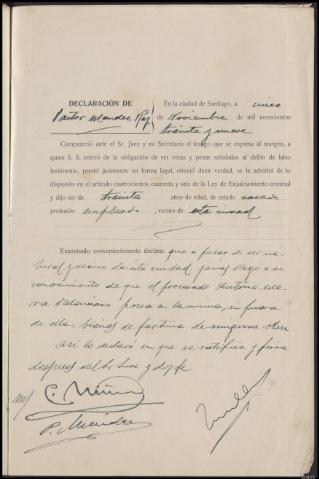 DECLARACIÓN DE
Pastor Mendez Rey
En la ciudad de Santiago, a cinco
de Noviembre de mil novecientos
treinta y nueve
Compareció ante el Sr. Juez y mi Secretario el testigo que se expresa al margen, a
quien S. S. enteró de la obligación de ser veraz y penas señaladas al delito de falso
testimonio, prestó juramento en forma legal, ofreció decir verdad, se le advirtió de lo
dispuesto en el artículo cuatrocientos cuarenta y seis de la Ley de Enjuiciamiento criminal
y dijo ser de treinta años de edad, de estado casado
profesión empleado, vecino de esta ciudad
Examinado convenientemente declara: que a pesar de ser na-
tural y vecino de esta ciudad jamás llegó a su
conocimiento de que el procesado Antonio
Valenciano posea en la misma, ni fuera
de ella, bienes de fortuna de ninguna clase
así lo declaró en que se ratifica y firma
después del Sr Juez y doy fe
P. Méndez